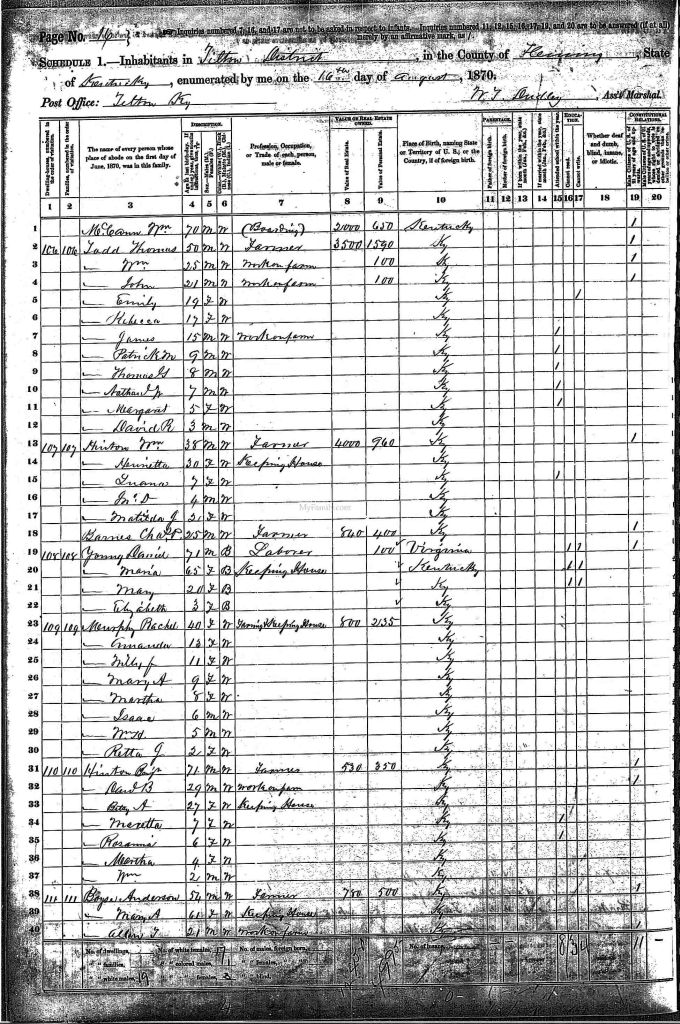 Page No. 16
Inquiries numbered 7, 16, and 17 are not to be asked in respect to infants. Inquiries numbered 11, 12, 15, 16, 17, 19, and 20 are to be answered (if at all) merely by an affirmative mark, as /.
SCHEDULE 1.—Inhabitants in Tilton District, in the County of Fleming, State
of Kentucky, enumerated by me on the 16th day of August, 1870.
Post Office: Tilton Ky W. T. Dudley, Ass't Marshal.
DESCRIPTION. VALUE OF REAL ESTATE OWNED. PARENTAGE. EDUCATION. CONSTITUTIONAL RELATIONS.
Dwelling-houses, numbered in the order of visitation. Families, numbered in the order of visitation. The name of every person whose place of abode on the first day of June, 1870, was in this family. Profession, Occupation, or Trade of each person, male or female. Value of Real Estate. Value of Personal Estate. Place of Birth, naming State or Territory of U. S.; or the Country, if of foreign birth. Father of foreign birth. Mother of foreign birth. Attended school within the year. Cannot read. Cannot write. Whether deaf and dumb, blind, insane, or idiotic.
1 2 3 4 5 6 7 8 9 10 11 12 13 14 15 16 17 18 19 20
1 McCann Wm 70 M W (Boarding) 2000 650 Kentucky 1
2 106 106 Todd Thomas 50 M W Farmer 3500 1590 Ky 1
3 — Wm 25 M W Work on farm 100 Ky 1
4 — John 21 M W Work on farm 100 Ky 1
5 — Emily 19 F W Ky 1
6 — Rebecca 17 F W Ky
7 — James 15 M W Work on farm Ky 1
8 — Patrick M 9 M W Ky 1
9 — Thomas G 8 M W Ky 1
10 — Nathan 7 M W Ky 1
11 — Margaret 5 F W Ky
12 — David R 3 M W Ky
13 107 107 Hinton Wm 38 M W Farmer 4000 960 Ky 1
14 — Henrietta 30 F W Keeping House Ky
15 — Luana 7 F W Ky 1
16 — Jno D 4 M W Ky
17 — Matilda J 2 F W Ky
18 Barnes Chas P 25 M W Farmer 840 400 Ky 1
19 108 108 Young David 71 M B Laborer 100 Virginia 1 1 1
20 — Maria 65 F B Keeping House Kentucky 1 1
21 — Mary 20 F B Ky 1 1
22 — Elizabeth 3 F B Ky
23 109 109 Murphy Rachel 40 F W Farming & Keeping House 800 2135 Ky
24 — Amanda 13 F W Ky
25 — 11 F W Ky
26 — Mary A 9 F W Ky
27 — Martha 8 F W Ky
28 — Isaac 6 M W Ky
29 — Wm H 5 M W Ky
30 — Retta J 2 F W Ky
31 110 110 Hinton Benj 71 M W Farmer 530 350 Ky 1
32 — David B 29 M W Work on farm Ky 1
33 — Betsy A 27 F W Keeping House Ky 1
34 — Maretta 7 F W Ky 1
35 — Rosanna 6 F W Ky 1
36 — Martha 4 F W Ky
37 — Wm 2 M W Ky
38 111 111 Boyse Anderson 54 M W Farmer 780 500 Ky 1
39 — Mary A 61 F W Keeping House Ky
40 — Allen T 21 M W Work on farm Ky 1
No. of dwellings, No. of white females, 17 No. of males, foreign born, No. of insane, 11 –
" " families, " " colored males, 1 " " females,
" " white males, 19 " " females, 3 " " blind,
MyFamily.com